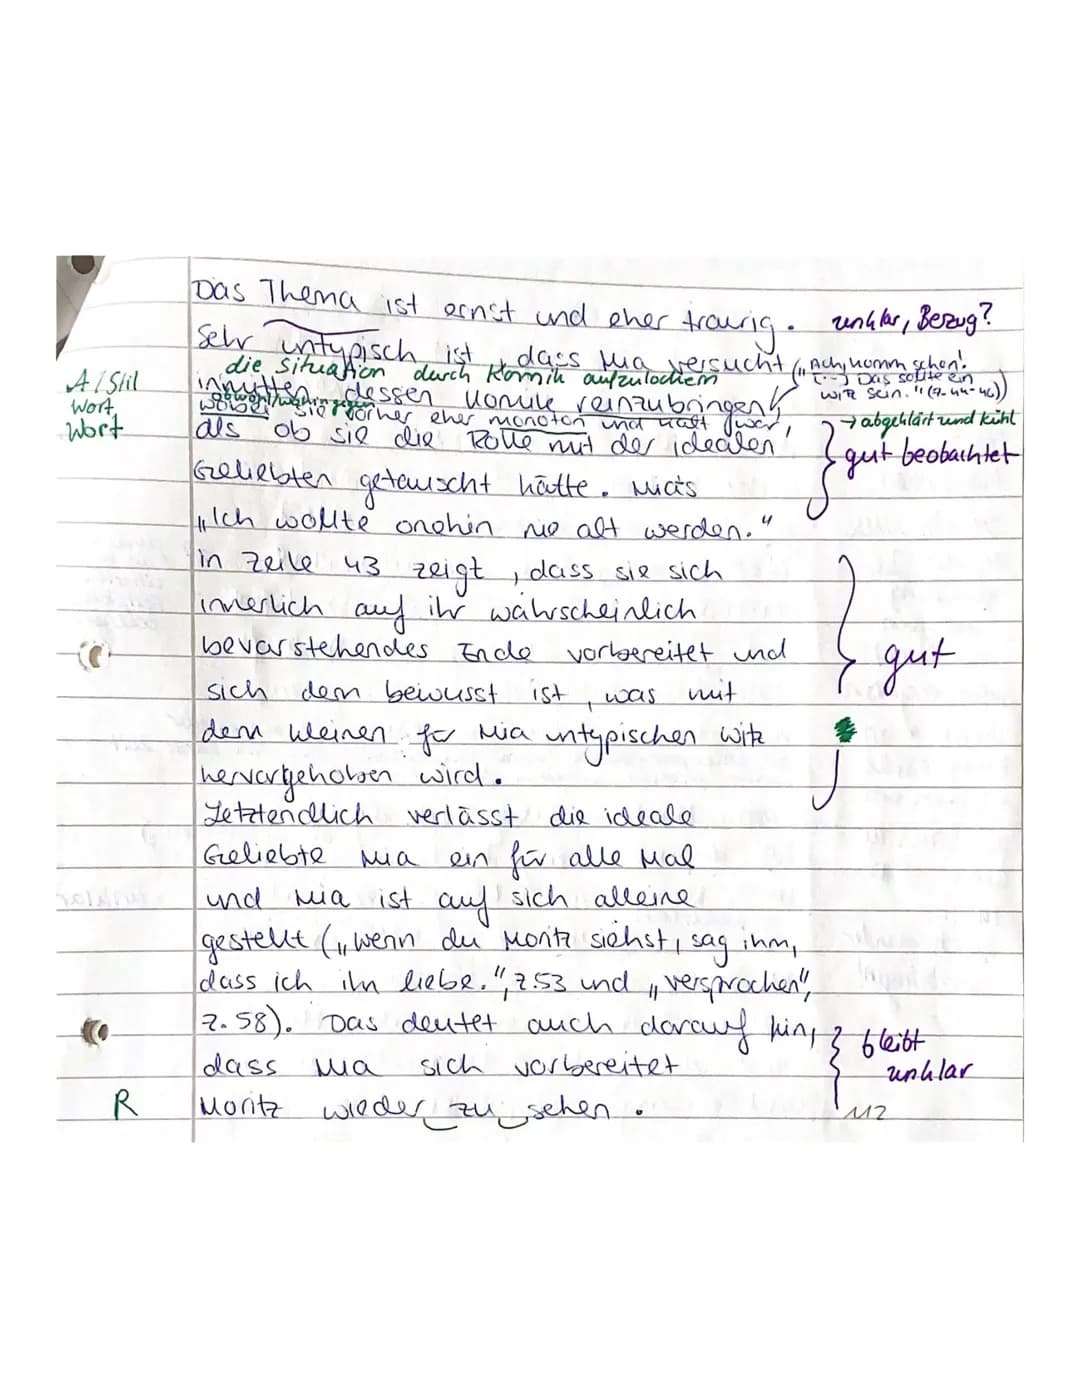 Das Thema ist ernst und eher traurig. unklar, Bezug?
Sehr untypisch ist, dass Mia versucht („Ach, komm schon!
die Situation durch Komik aufzulockern
(...) Das sollte ein
A/Stil inmitten dessen Komik reinzubringen
Witz sein." (Z. 44-46))
obwohl/wohingegen
Wort wobei sie vorher eher monoton und kalt war,
→ abgeklärt und kühl
Wort als ob sie die Rolle mit der idealen
gut beobachtet
Geliebten getauscht hätte. Mia's
„Ich wollte onehin nie alt werden."
in Zeile 43 zeigt, dass sie sich
innerlich auf ihr wahrscheinlich
bevorstehendes Ende vorbereitet und gut
sich dem bewusst ist, was mit
dem kleinen für Mia untypischen Witz
hervorgehoben wird.
Letztendlich verlässt die ideale
Geliebte Mia ein für alle Mal
und Mia ist auf sich alleine
gestellt („Wenn du Moritz siehst, sag ihm,
dass ich ihn liebe.", Z.53 und „versprochen",
Z. 58). Das deutet auch darauf hin, bleibt
dass Mia sich vorbereitet unklar
R Moritz wieder zu sehen.